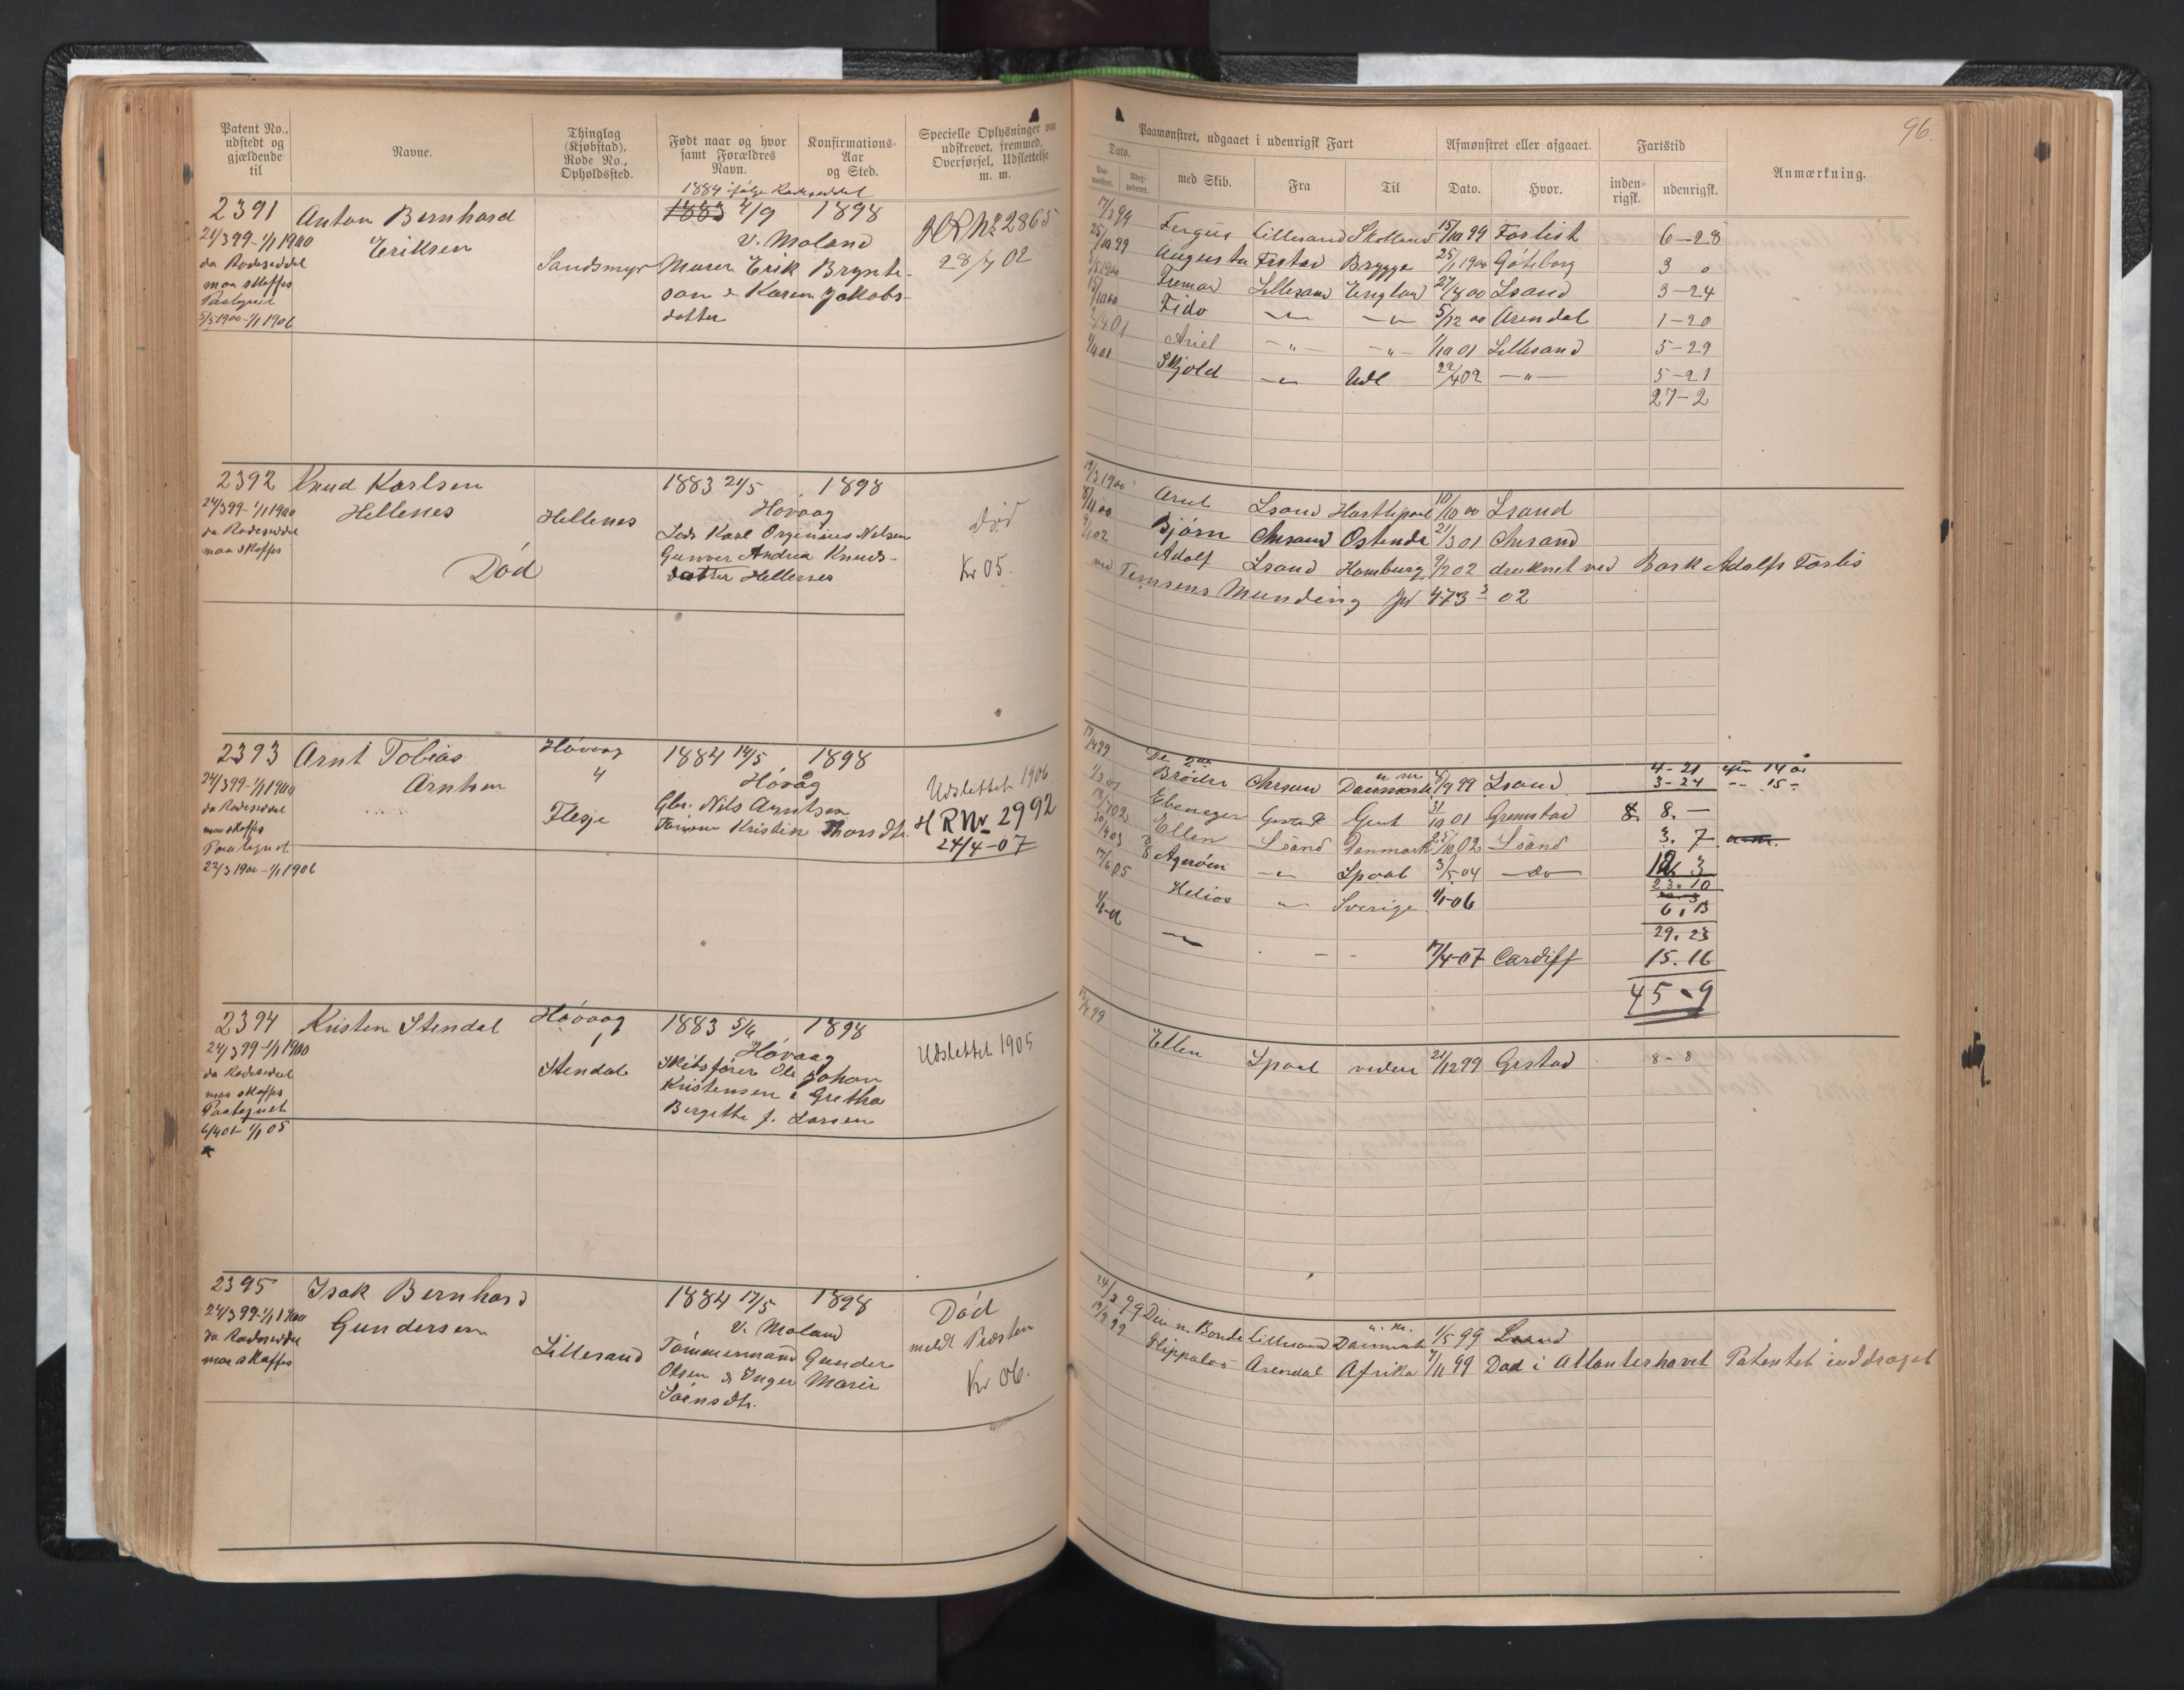 Patent No., udstedt og gjældende til
Navne.
Thinglag (Kjøbstad), Rode No., Opholdssted.
Født naar og hvor samt Forældres Navn.
Konfirmations-Aar og Sted.
Specielle Oplysninger om udskrevet, fremmed, Overførsel, Udslettelse m. m.
2391
24/3 99 - 1/1 1900
da Rodeseddel
maa skaffes
Paategnet
5/5 1900 - 1/1 1906
Anton Bernhard
Eriksen
Sandsmyr
1884 ifølge Rodeseddel
1883 4/9 1898
V. Moland
Murer Erik Brynte-
son & Karen Jakobs-
datter
HR No 2865
28/7 02
2392
24/3 99 - 1/1 1900
da Rodeseddel
maa skaffes
Knud Karlsen
Hellenes
Død
Hellenes
1883 21/5 1898
Høvaag
Lods Karl Orginius Nilsen
Gunver Andrea Knuds-
datter Hellenes
Død
Kr 05.
2393
24/3 99 - 1/1 1900
da Rodeseddel
maa skaffes
Paategnet
22/3 1900 - 1/1 1906
Arnt Tobias
Arntsen
Høvaag
4
Flesje
1884 14/5 1898
Høvåg
Gbr. Nils Arntsen
Kristin Thorsdtr.
Udslettet 1906
HR Nr. 2992
24/4-07
2394
24/3 99 - 1/1 1900
da Rodeseddel
maa skaffes
Paategnet
6/4 01 - 1/1 05
Kristen Stendal
Høvaag
1
Stendal
1883 5/6 1898
Høvaag
Skibsfører Ole Johan
Kristensen & Gretha
Bergitte f. Larsen
Udslettet 1905
2395
24/3 99 - 1/1 1900
da Rodeseddel
maa skaffes
Isak Bernhard
Gundersen
Lillesand
1884 17/5 1898
V. Moland
Tømmermand Gunder
Olsen & Inger Marie
Sørensdtr.
Død
meldt Præsten
Kr 06.
96.
Paamønstret, udgaaet i udenrigsk Fart
Afmønstret eller afgaaet.
Fartstid
Anmærkning.
Dato.
med Skib.
Fra
Til
Dato.
Hvor.
inden-rigsk.
udenrigsk.
17/3 99 Fergus Lillesand Skotland 15/10 99 Forlist 6-28
25/10 99 Augusta Brygge 25/1 1900 Göteborg 3 0
Fremad Lillesand England 27/8 00 Lsand 3-24
Fido -"- -"- 5/12 00 Arendal 1-20
Ariel -"- -"- 1/10 01 Lillesand 5-29
Skjold -"- Udl 22/4 02 -"- 5-21
27-2
19/3 1900 Lsand Hartlepool 10/10 00 Lsand
Bjørn Chrsand Ostende 21/3 01 Chrsand
Adolf Lsand Hamburg 9/2 02 druknet ved Bark Adolfs Forlis
ved Temsens Munding Jr 473 3 02
De 2de
Brødre Chrsan Danmark 8/9 99 Lsand 4-21 efter 14 år
3-24 -"- 15 -
Ebenezer Gent 31/10 01 Grimstad 8. 8. -
Ellen Lsand Danmark 25/10 02 Lsand 3. 7
Agerøen -"- Spool 3/5 04 do 12 3
23. 10
17/6 05 Helios " Sverige 1/1-06 6, 13
29. 23
17/4-07 Cardiff 15. 16
45-9
Ellen Spool 21/12 99 Grstad 8-8
24/3 99 Den n. Bonde Lillesand Danmark 1/5 99 Lsand
Hippolos Arendal Afrika 7/11 99 Død i Atlanterhavet Patentet inddraget